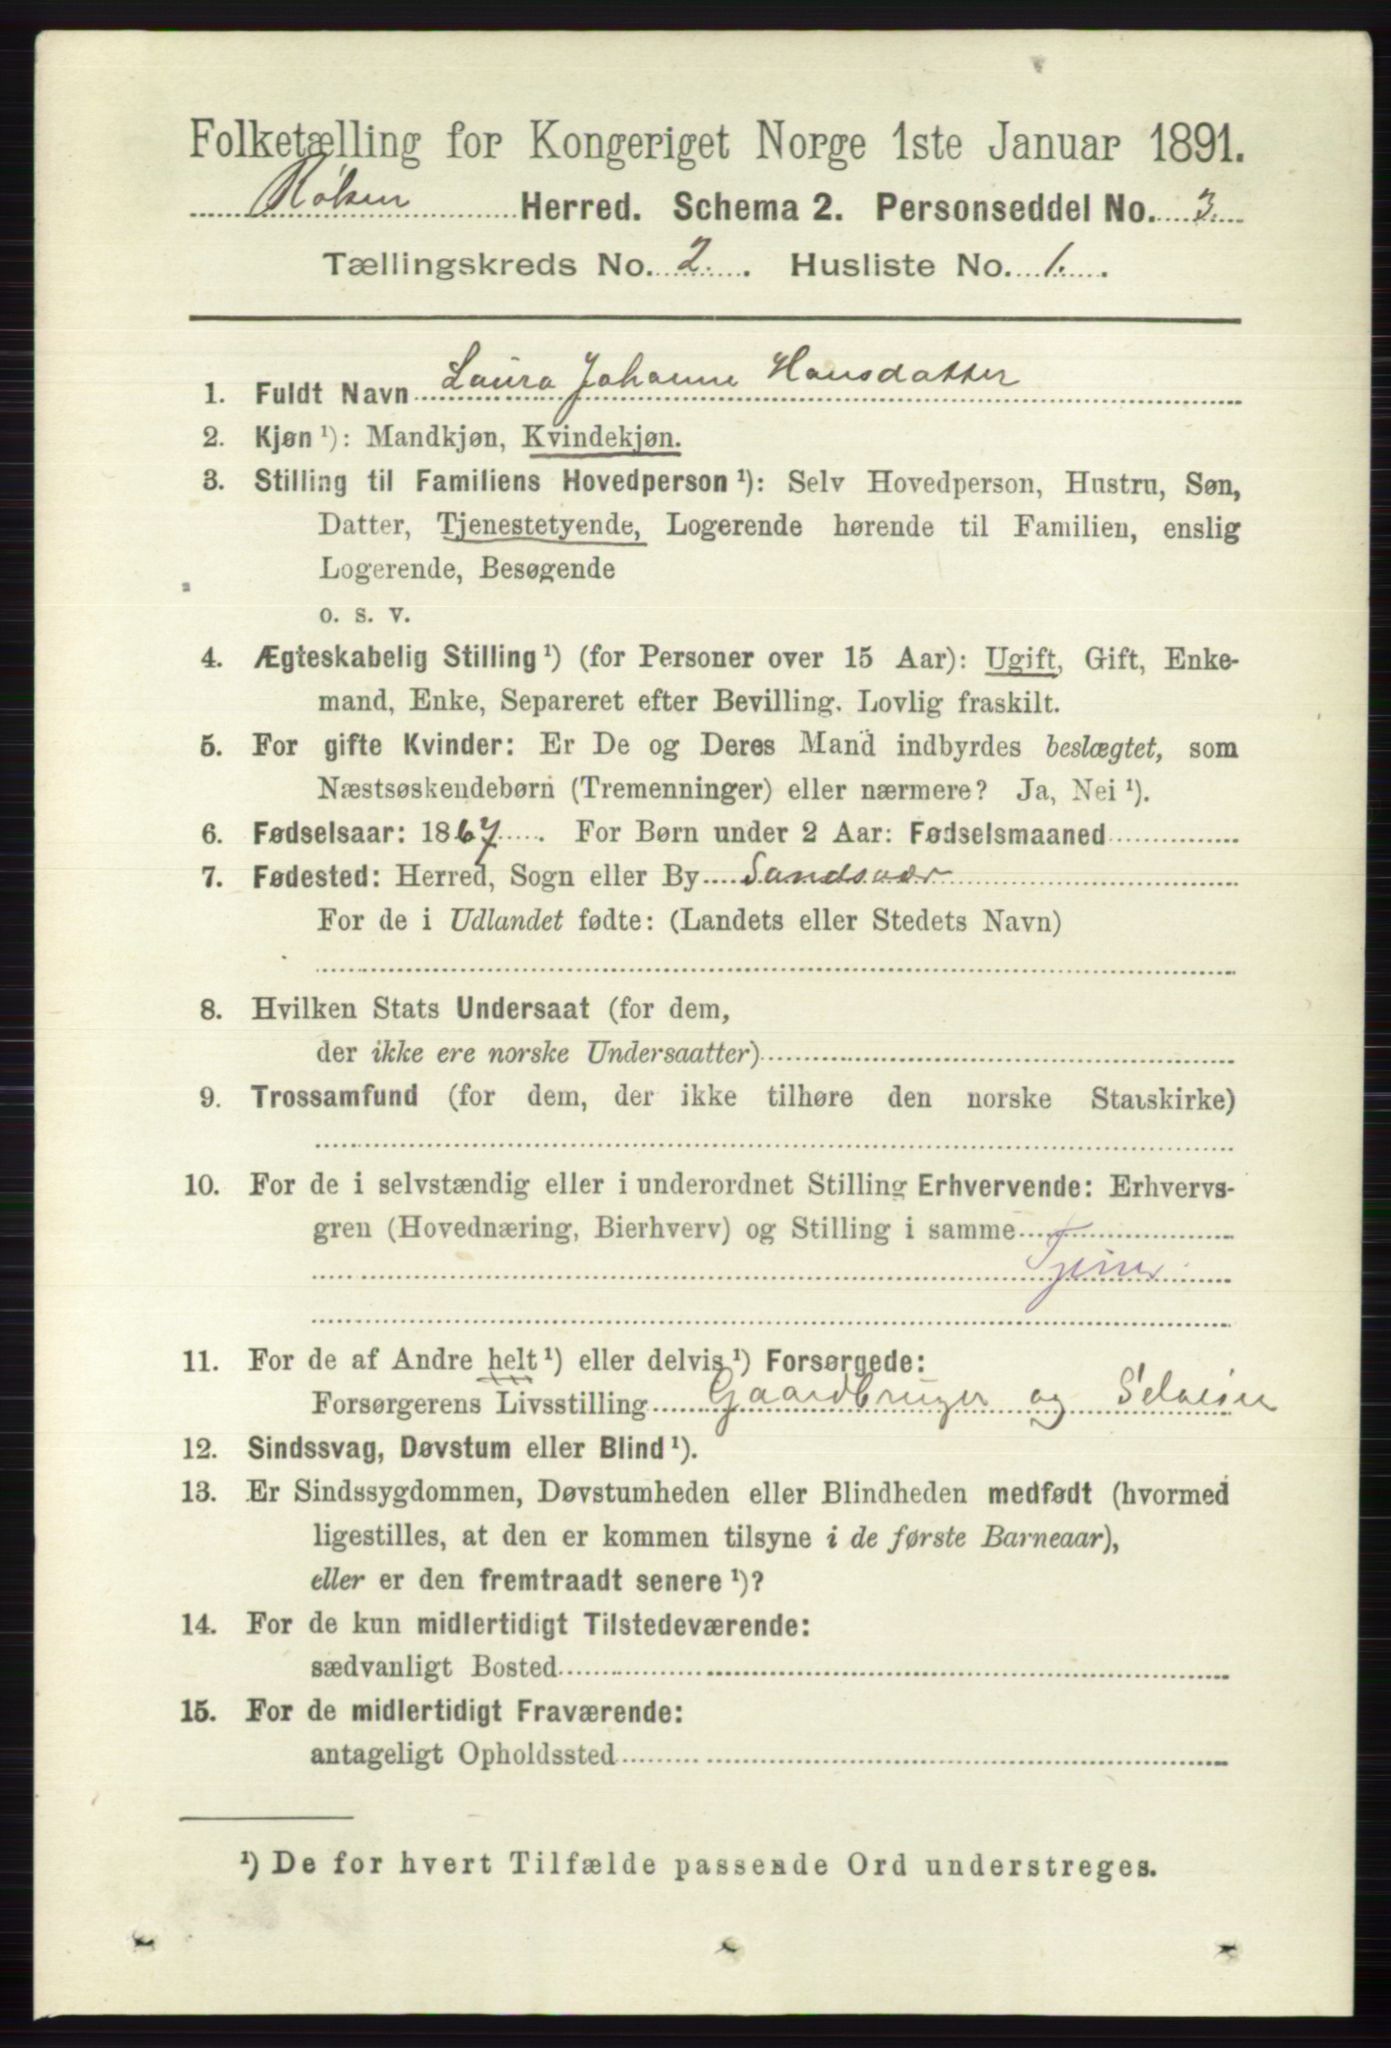 Folketælling for Kongeriget Norge 1ste Januar 1891.
Røken Herred. Schema 2. Personseddel No. 3.
Tællingskreds No. 2. Husliste No. 1.
1. Fuldt Navn Laura Johanne Hansdatter
2. Kjøn ¹): Mandkjøn, Kvindekjøn.
3. Stilling til Familiens Hovedperson ¹): Selv Hovedperson, Hustru, Søn,
Datter, Tjenestetyende, Logerende hørende til Familien, enslig
Logerende, Besøgende
o. s. v.
4. Ægteskabelig Stilling ¹) (for Personer over 15 Aar): Ugift, Gift, Enke-
mand, Enke, Separeret efter Bevilling. Lovlig fraskilt.
5. For gifte Kvinder: Er De og Deres Mand indbyrdes beslægtet, som
Næstsøskendebørn (Tremenninger) eller nærmere? Ja, Nei ¹).
6. Fødselsaar: 1867. For Børn under 2 Aar: Fødselsmaaned
7. Fødested: Herred, Sogn eller By Sandsvær
For de i Udlandet fødte: (Landets eller Stedets Navn)
8. Hvilken Stats Undersaat (for dem,
der ikke ere norske Undersaatter)
9. Trossamfund (for dem, der ikke tilhøre den norske Statskirke)
10. For de i selvstændig eller i underordnet Stilling Erhvervende: Erhvervs-
gren (Hovednæring, Bierhverv) og Stilling i samme
11. For de af Andre helt ¹) eller delvis ¹) Forsørgede:
Forsørgerens Livsstilling Gaardbruger og
12. Sindssvag, Døvstum eller Blind ¹).
13. Er Sindssygdommen, Døvstumheden eller Blindheden medfødt (hvormed
ligestilles, at den er kommen tilsyne i de første Barneaar),
eller er den fremtraadt senere ¹)?
14. For de kun midlertidigt Tilstedeværende:
sædvanligt Bosted
15. For de midlertidigt Fraværende:
antageligt Opholdssted
¹) De for hvert Tilfælde passende Ord understreges.